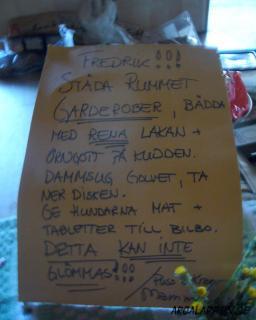 FREDRIK!!!
STÄDA RUMMET
GARDEROBER, BÄDDA
MED RENA LAKAN +
ÖRNGOTT PÅ KUDDEN.
DAMMSUG GOLVET, TA
NER DISKEN.
GE HUNDARNA MAT +
TABLETTER TILL BILBO.
DETTA KAN INTE
GLÖMMAS!!!
Puss & Kram
Mamma
ARGALAPPEN.SE